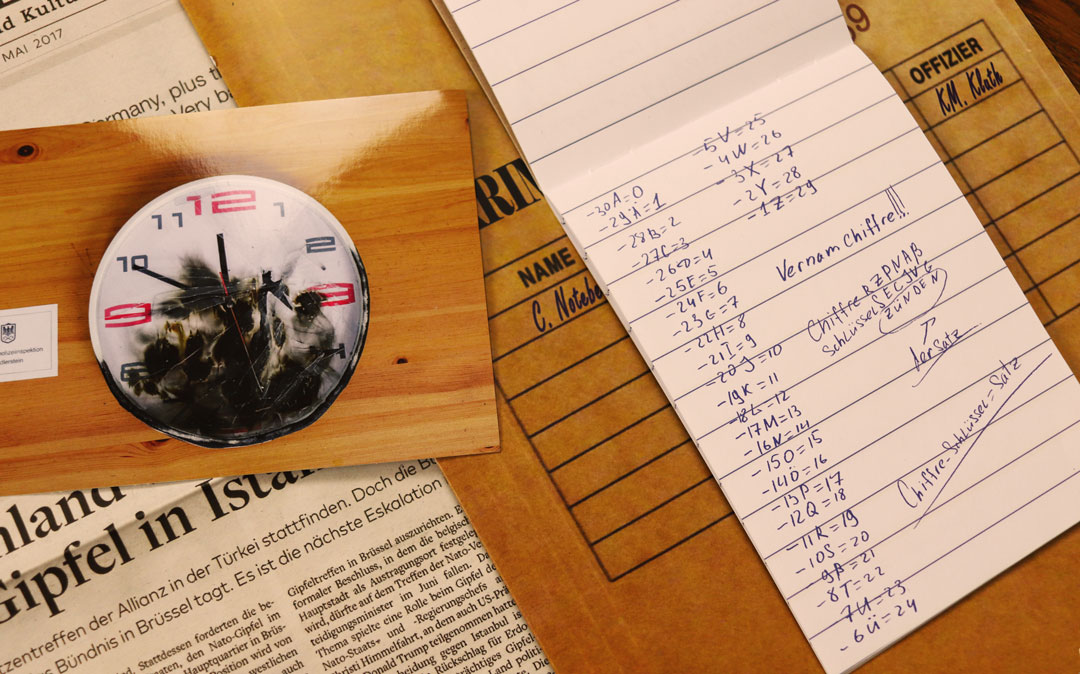 d Kultu
MAI 2017
ermany, plus t
Very b
12
11
1
10
2
9
olizeiinspektion
llerstein
nland
Gipfel in Ista
zentreffen der Allianz in der Türkei stattfinden. Doch die B
s Bündnis in Brüssel tagt. Es ist die nächste Eskalation
Stattdessen forderten die be-
aten, den Nato-Gipfel im
Hauptquartier in Brüs-
Position wird von
westlichen
auch
Gipfeltreffen in Brüssel auszurichten. E
formaler Beschluss, in dem die belgisch
Hauptstadt als Austragungsort festgele
wird, dürfte auf dem Treffen der Nato-Ve
teidigungsminister im Juni fallen. De
Thema spielte eine Rolle beim Gipfel de
Nato-Staats- und -Regierungschefs a
Christi Himmelfahrt, an dem auch US-Prä
Donald Trump teilgenommen hatte
eidung gegen Istanbul is
Rückschlag für Erdo
trächtiges Gipfel
Land politi
Die
ARIN
NAME
C. Notebe
OFFIZIER
KM. Kluth
-30A=0
-29Ä=1
-28B=2
-27C=3
-26D=4
-25E=5
-24F=6
-23G=7
-22H=8
-21I=9
-20J=10
-19K=11
-18L=12
-17M=13
-16N=14
-15O=15
-14Ö=16
-13P=17
-12Q=18
-11R=19
-10S=20
-8T=22
-7U=23
-6Ü=24
-5V=25
-4W=26
-3X=27
-2Y=28
-1Z=29
Vernam Chiffre!!!
Chiffre RZPNAB
Schlüssel SECJVG
ZÜNDEN
der Satz
Chiffre-Schlüssel=Satz